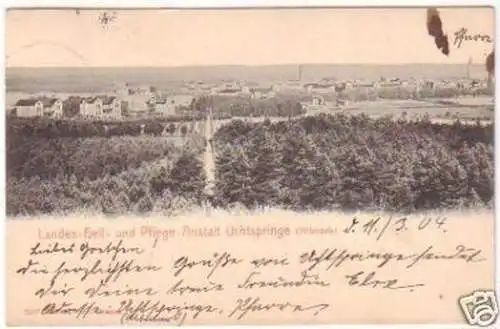 Pfarre
Landes-Heil- und Pflege-Anstalt Uchtspringe (Altmark)
d. 11/3.04.
Liebes Gretchen
die herzlichsten Grüße von Uchtspringe sendet
dir Deine treue Freundin Elex.
Adresse: Uchtspringe, Pfarre
(Altmark)